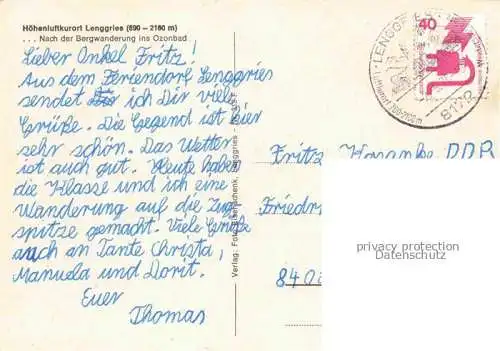 Höhenluftkurort Lenggries (690 – 2160 m)
. . . Nach der Bergwanderung ins Ozonbad
Lieber Onkel Fritz!
Aus dem Feriendorf Lenggries
sendet ich Dir viele
Grüße. Die Gegend ist hier
sehr schön. Das Wetter
ist auch gut. Heute haben
die Klasse und ich eine
Wanderung auf die Zug-
spitze gemacht. Viele Grüße
auch an Tante Christa,
Manuela und Dorit.
Euer
Thomas
Verlag: Lenggries
LENGGRIES
8172
40
Fritz DDR
Friedr
privacy protection
Datenschutz